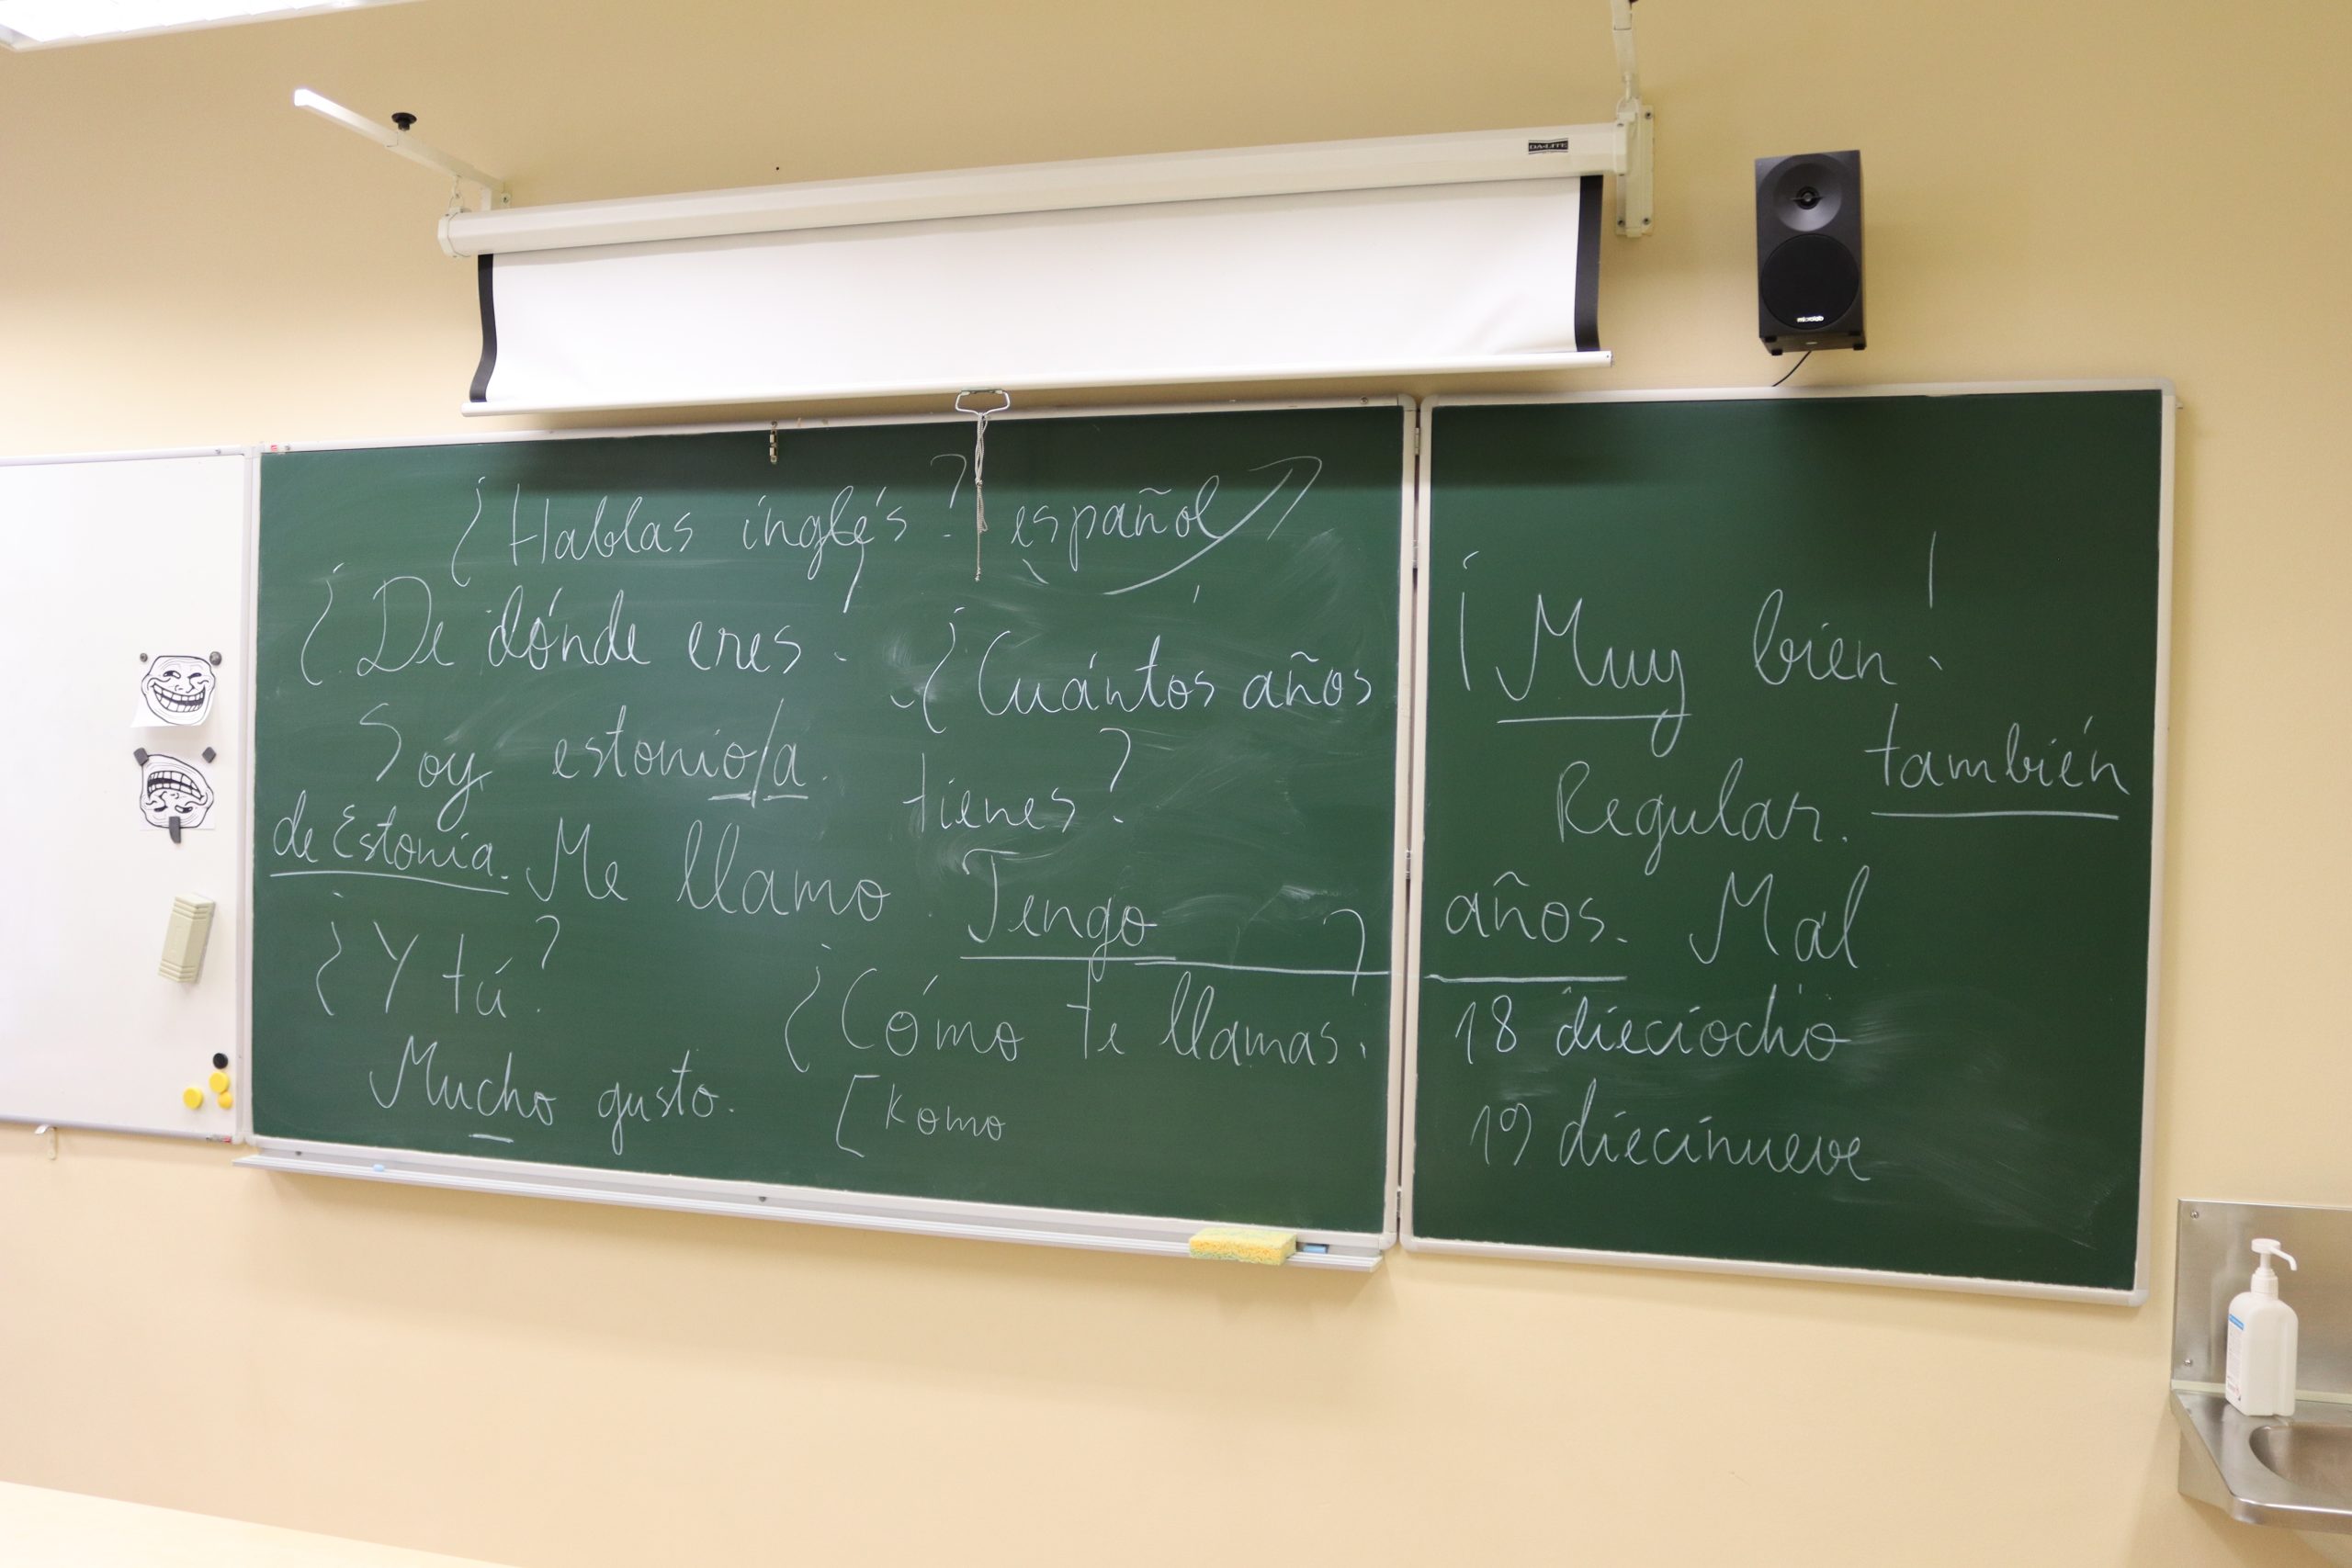 DA-LITE
microlab
¿Hablas inglés? español
¿De dónde eres?
Soy estonio/a.
de Estonia. Me llamo
¿Y tú?
Mucho gusto.
¿Cuántos años
tienes?
Tengo ____ años.
¿Cómo te llamas?
[komo
¡Muy bien!
también
Regular.
Mal
18 dieciocho
19 diecinueve